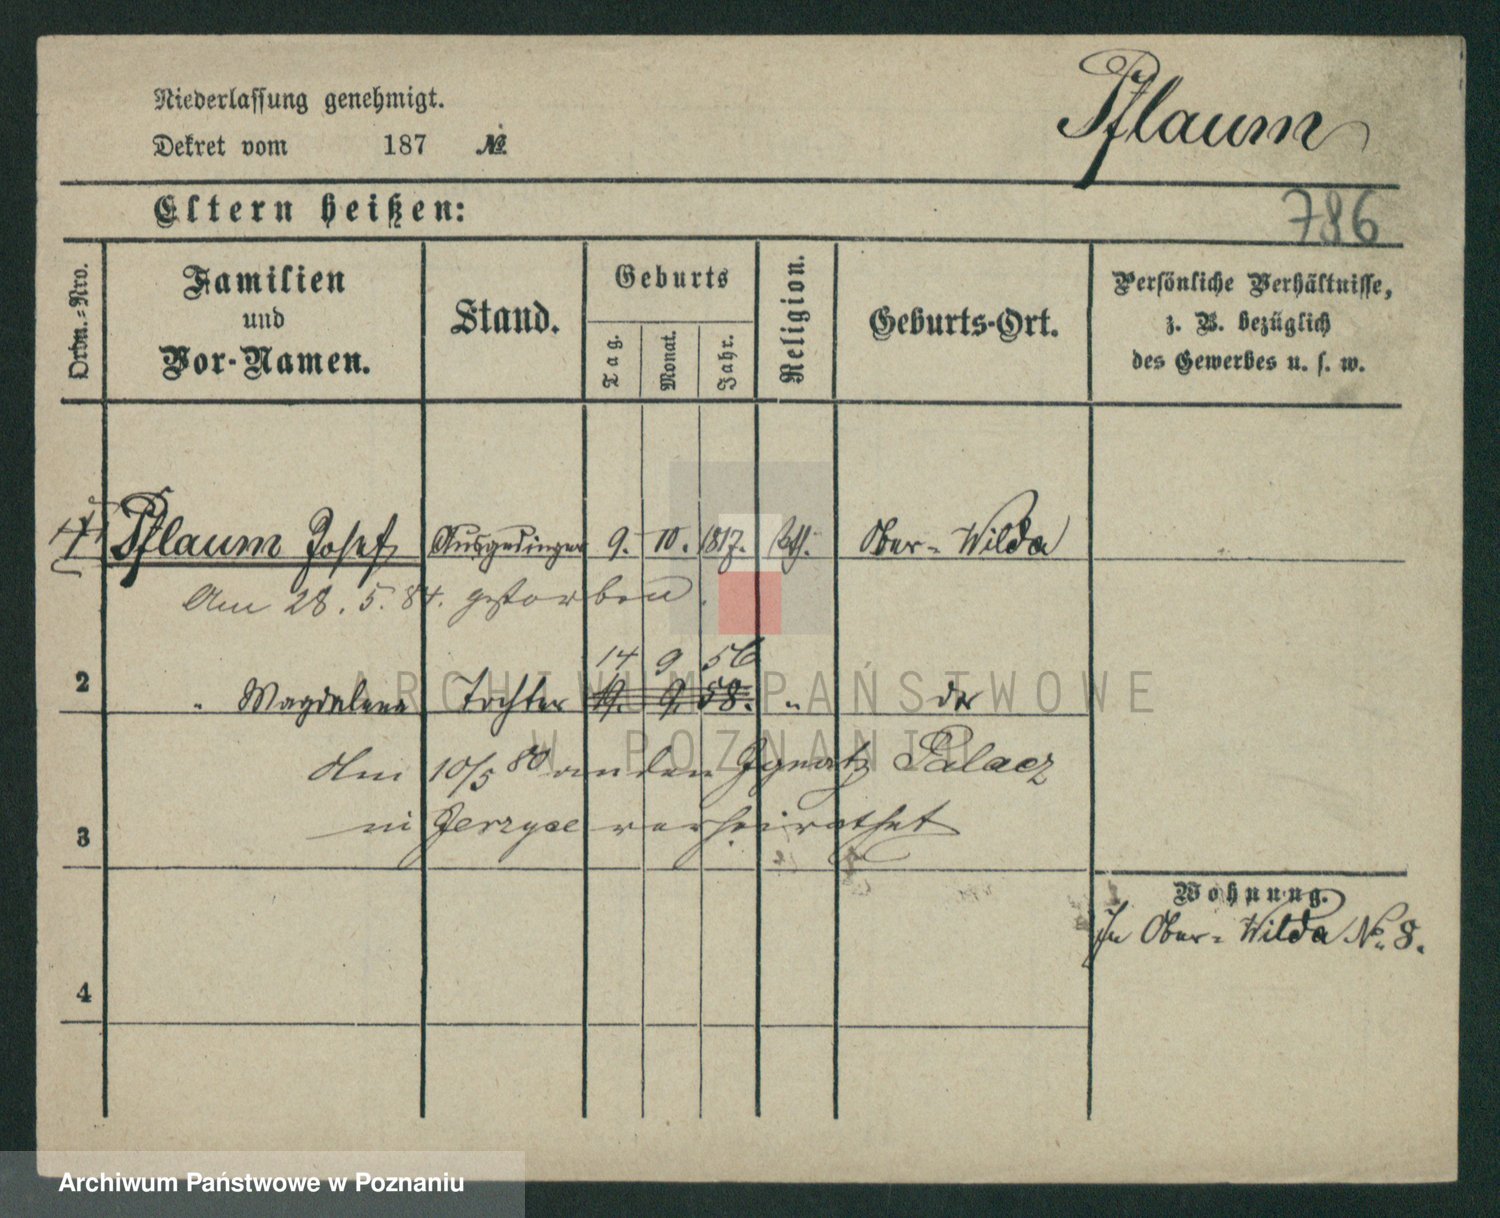 Niederlassung genehmigt.
Dekret vom 187 №
Pflaum
Eltern heißen:
786
Ordn.-Nro.
Familien und Vor-Namen.
Stand.
Geburts
Tag.
Monat.
Jahr.
Religion.
Geburts-Ort.
Persönliche Verhältnisse,
z. B. bezüglich
des Gewerbes u. s. w.
1 Pflaum Josef Ausgedinger 9. 10. 1817. Kth. Ober-Wilda
Am 28. 5. 84. gestorben.
14 9 56
2 " Magdalena Tochter 19. 9. 58. " do
Am 10/5 80 an den Ignatz Palacz
in Jerzyce verheirathet
3
Wohnung.
In Ober-Wilda No. 8.
4
ARCHIWUM PAŃSTWOWE
W POZNANIU
Archiwum Państwowe w Poznaniu